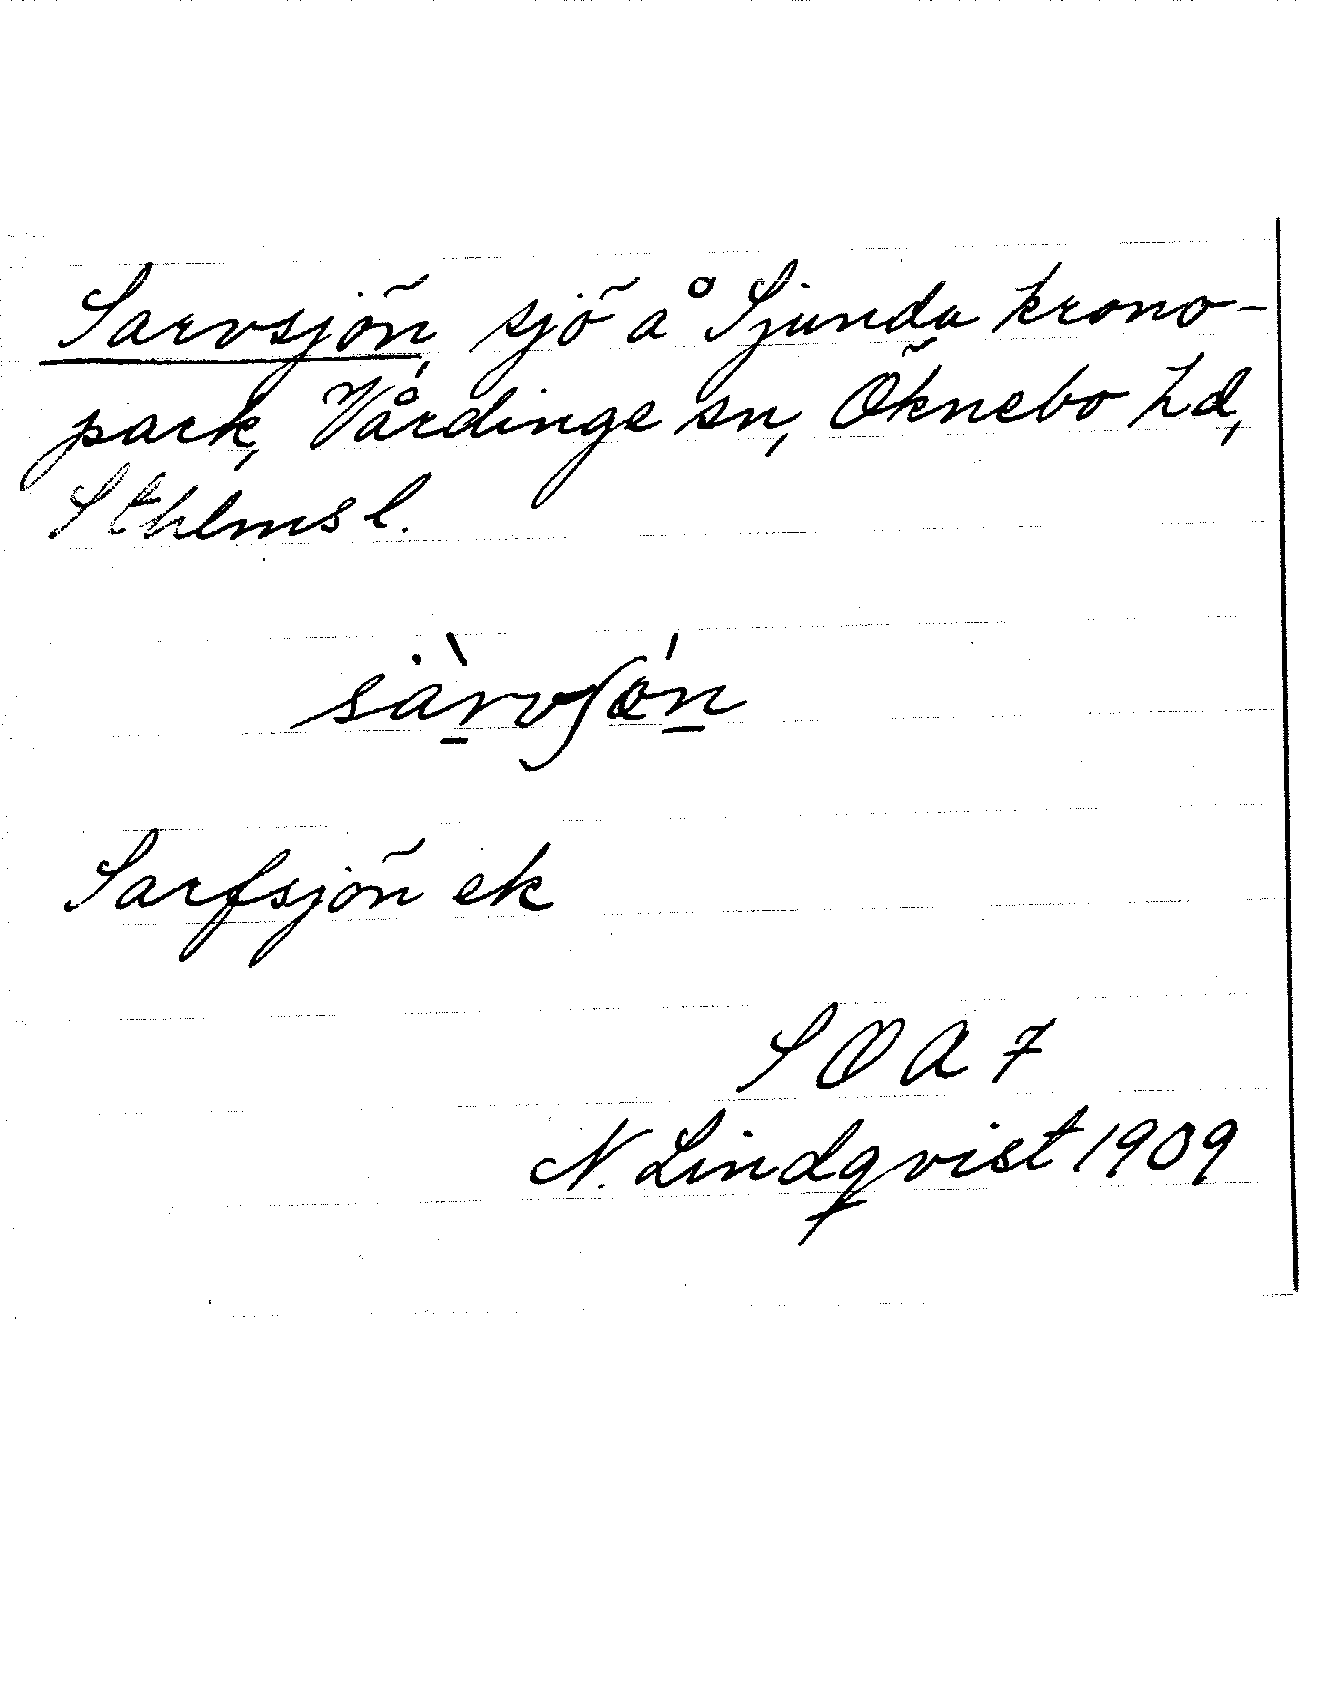 Sarvsjön, sjö å Sjunda krono-
park, Vårdinge sn, Öknebo hd,
Sthlms l.
sàrvʃǿn
Sarfsjön ek
SOA 7
N. Lindqvist 1909